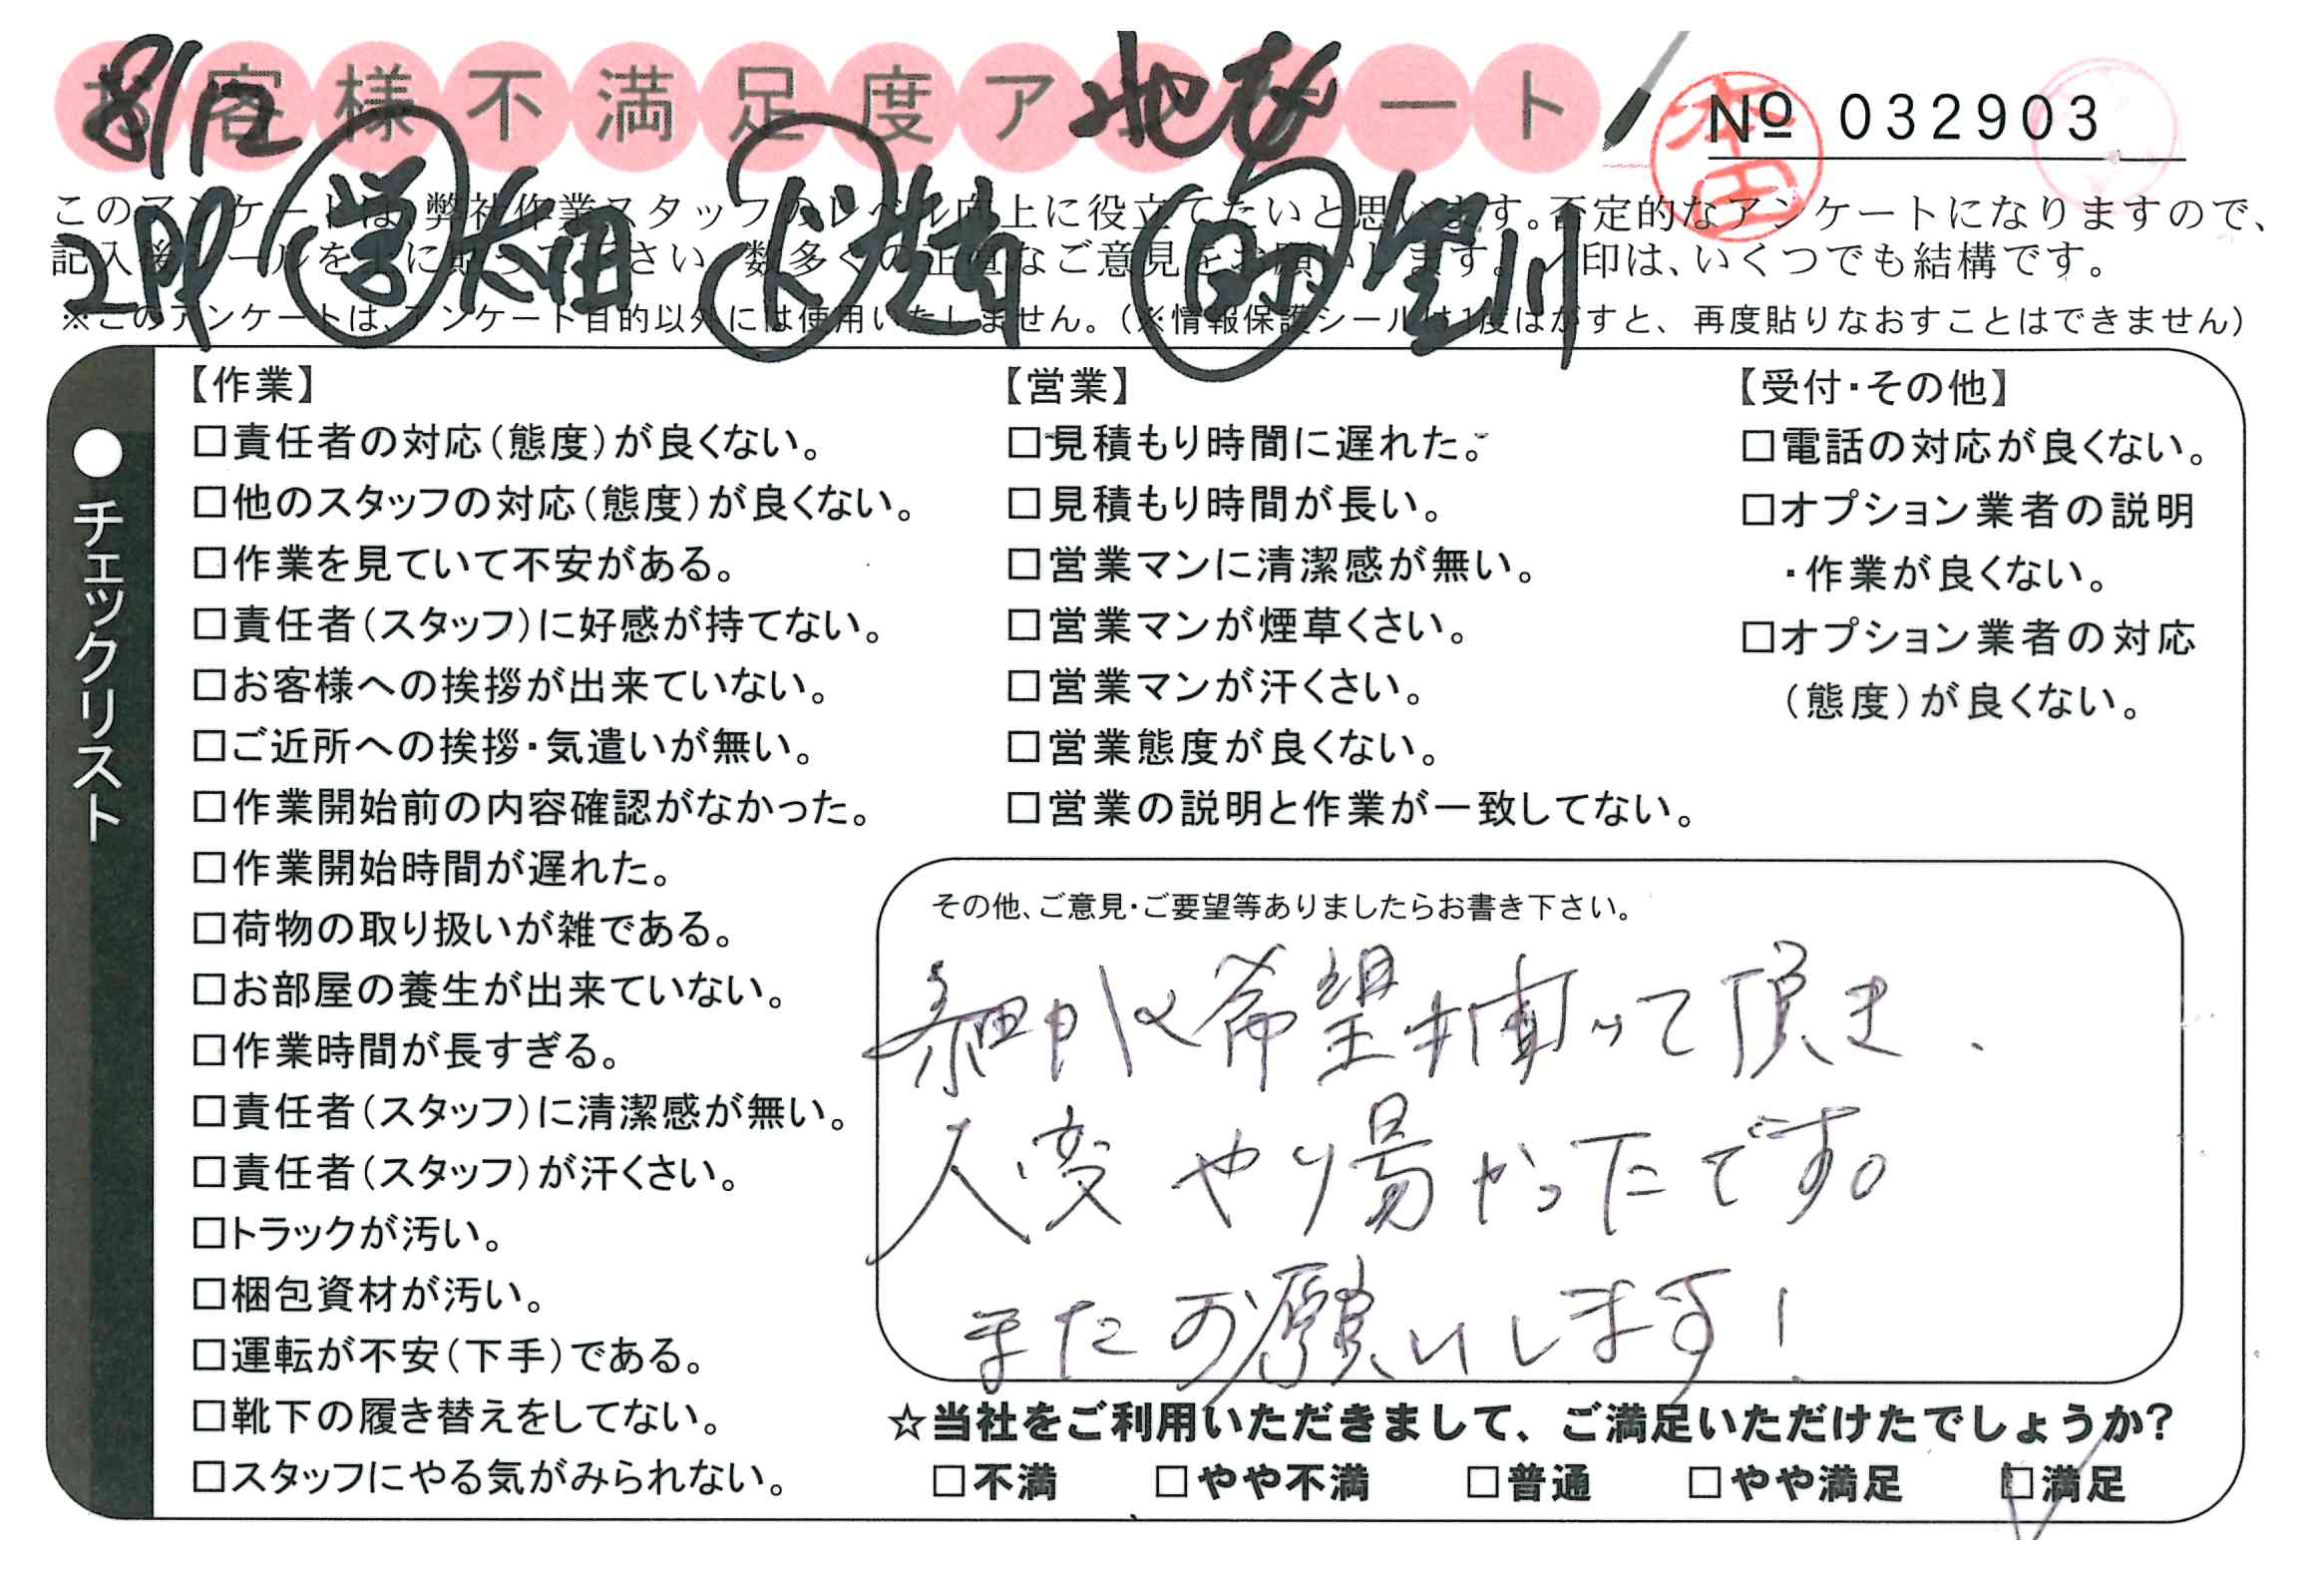 お客様不満足度アンケート
№ 032903
本田
8/12
2 学 太田
このアンケートは、弊社作業スタッフのレベル向上に役立てたいと思います。否定的なアンケートになりますので、
記入後シールを上に貼って下さい。数多くの正直なご意見をお願いします。✓印は、いくつでも結構です。
※このアンケートは、アンケート目的以外には使用いたしません。（※情報保護シールは1度はがすと、再度貼りなおすことはできません）
●チェックリスト
【作業】
□責任者の対応（態度）が良くない。
□他のスタッフの対応（態度）が良くない。
□作業を見ていて不安がある。
□責任者（スタッフ）に好感が持てない。
□お客様への挨拶が出来ていない。
□ご近所への挨拶・気遣いが無い。
□作業開始前の内容確認がなかった。
□作業開始時間が遅れた。
□荷物の取り扱いが雑である。
□お部屋の養生が出来ていない。
□作業時間が長すぎる。
□責任者（スタッフ）に清潔感が無い。
□責任者（スタッフ）が汗くさい。
□トラックが汚い。
□梱包資材が汚い。
□運転が不安（下手）である。
□靴下の履き替えをしてない。
□スタッフにやる気がみられない。
【営業】
□見積もり時間に遅れた。
□見積もり時間が長い。
□営業マンに清潔感が無い。
□営業マンが煙草くさい。
□営業マンが汗くさい。
□営業態度が良くない。
□営業の説明と作業が一致してない。
【受付・その他】
□電話の対応が良くない。
□オプション業者の説明
・作業が良くない。
□オプション業者の対応
（態度）が良くない。
その他、ご意見・ご要望等ありましたらお書き下さい。
希望って頂き、
大変やり易かったです。
またお願いします！
☆当社をご利用いただきまして、ご満足いただけたでしょうか？
□不満 □やや不満 □普通 □やや満足 ☑満足